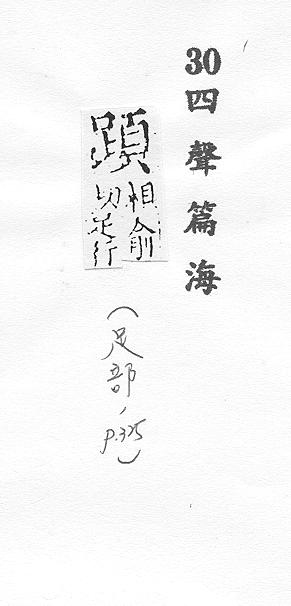 30四聲篇海
相俞
切足行
(足部,P.325)